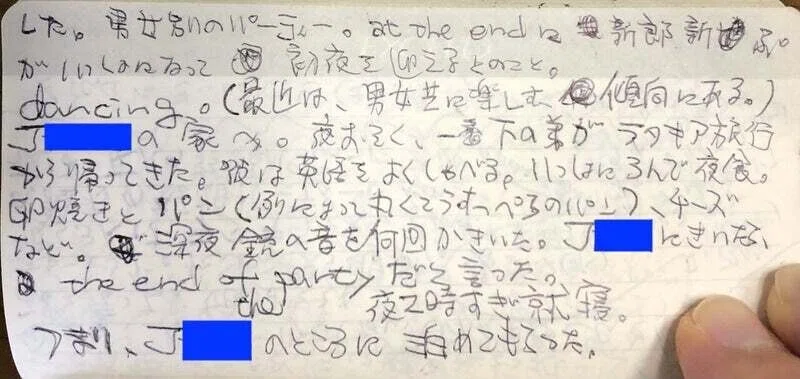 した。男女別のパーティー。at the end に 新郎新ぷ
がいっしょになって 初夜を迎えるとのこと。
dancing。(最近は、男女共に楽しむ 傾向にある。)
J の家へ。夜おそく、一番下の弟がラタキア旅行
から帰ってきた。彼は英語をよくしゃべる。いっしょに 夜食。
卵焼きとパン(例によって丸くてうすっぺらのパン)、チーズ
など。深夜 銃の音を何回かきいた。J にきいたら、
the end of the party だと言った。
夜2時すぎ就寝。
つまり、J のところに 泊めてもらった。